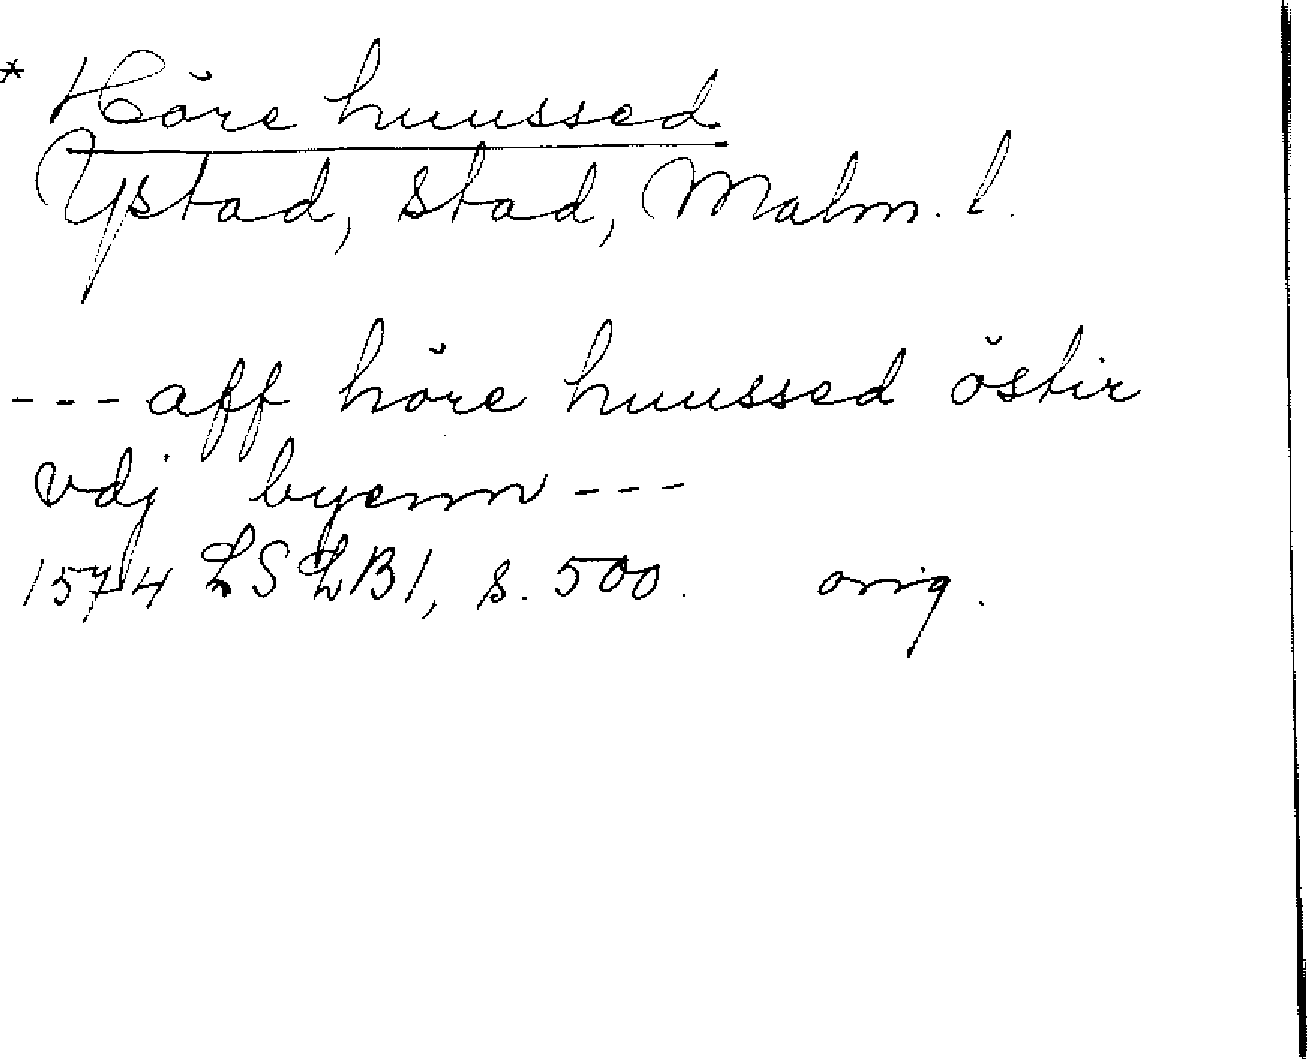 * Höre huussed
Ystad, stad, Malm. l.
--- aff höre huussed östir
vdj byenn ---
1574 LSLB1, s. 500. orig.